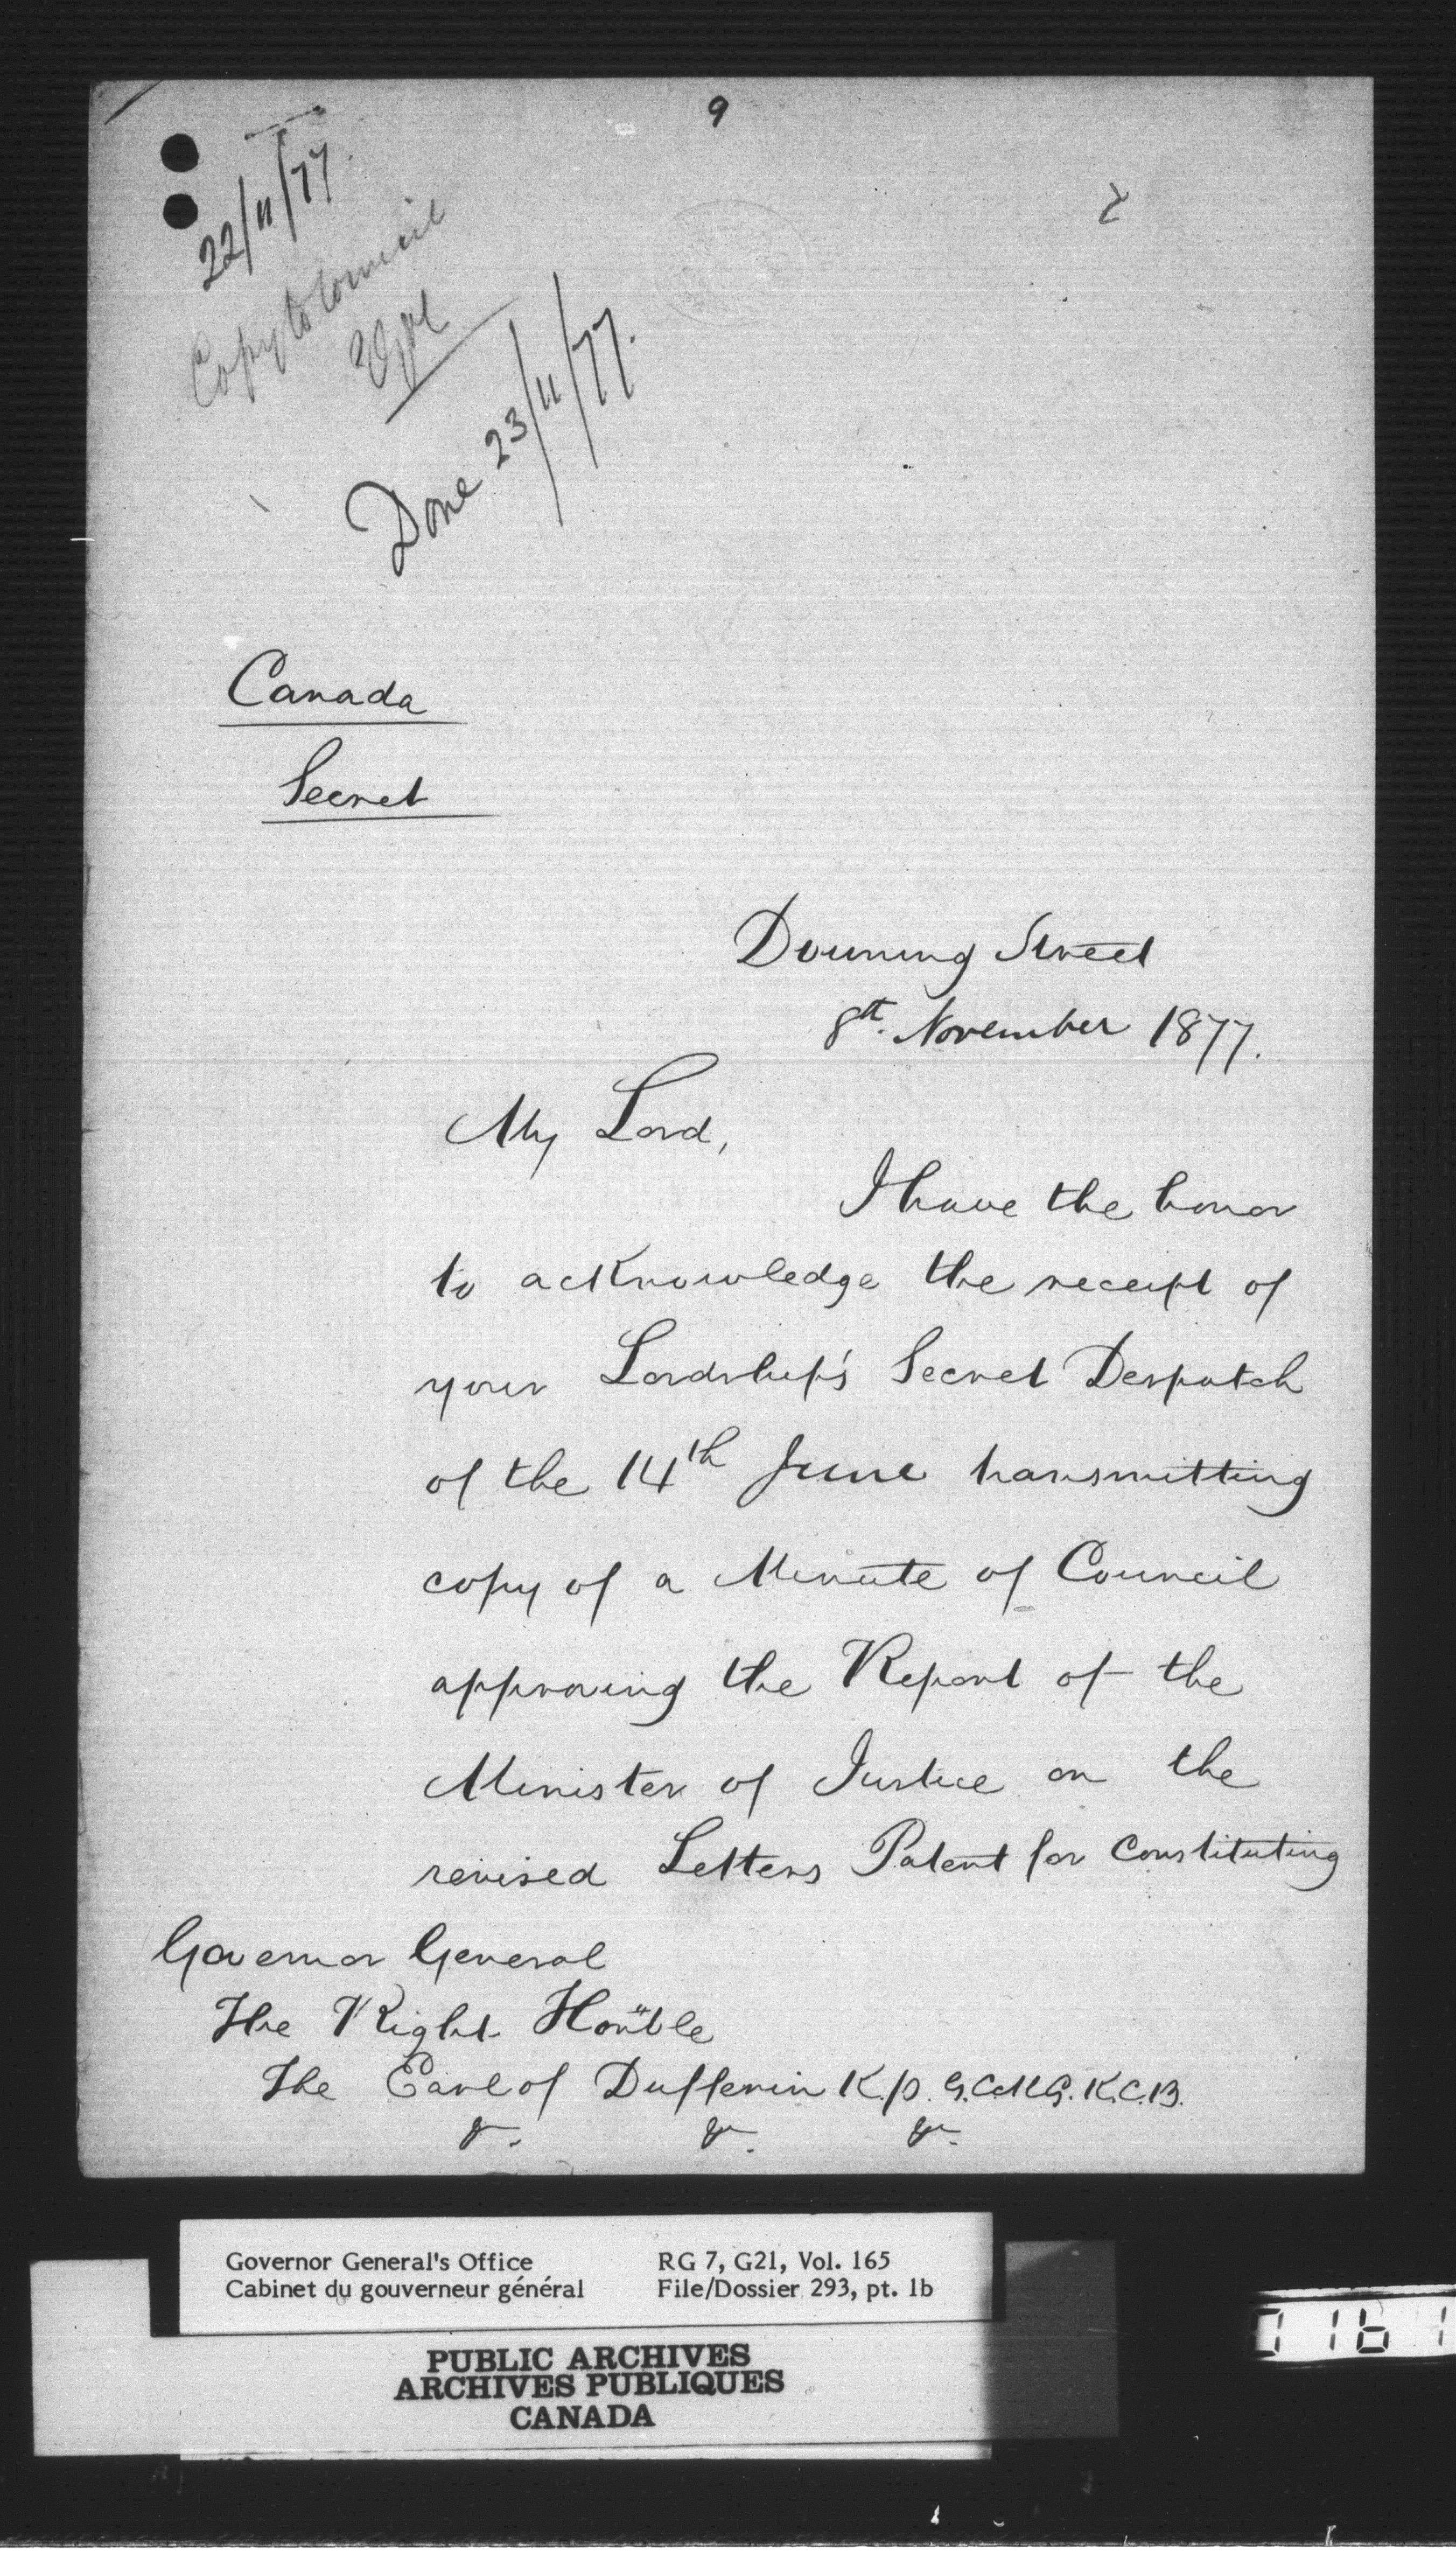 9
2
22/11/77.
Copy to Council
Done 23/11/77.
Canada
Secret
Downing Street
8th. November 1877.
My Lord,
I have the honor
to acknowledge the receipt of
your Lordship's Secret Despatch
of the 14th June transmitting
copy of a Minute of Council
approving the Report of the
Minister of Justice on the
revised Letters Patent for Constituting
Governor General
The Right Honble
The Earl of Dufferin K.P. G.C.M.G. K.C.B.
&c. &c. &c.
Governor General's Office
Cabinet du gouverneur général
RG 7, G21, Vol. 165
File/Dossier 293, pt. 1b
PUBLIC ARCHIVES
ARCHIVES PUBLIQUES
CANADA